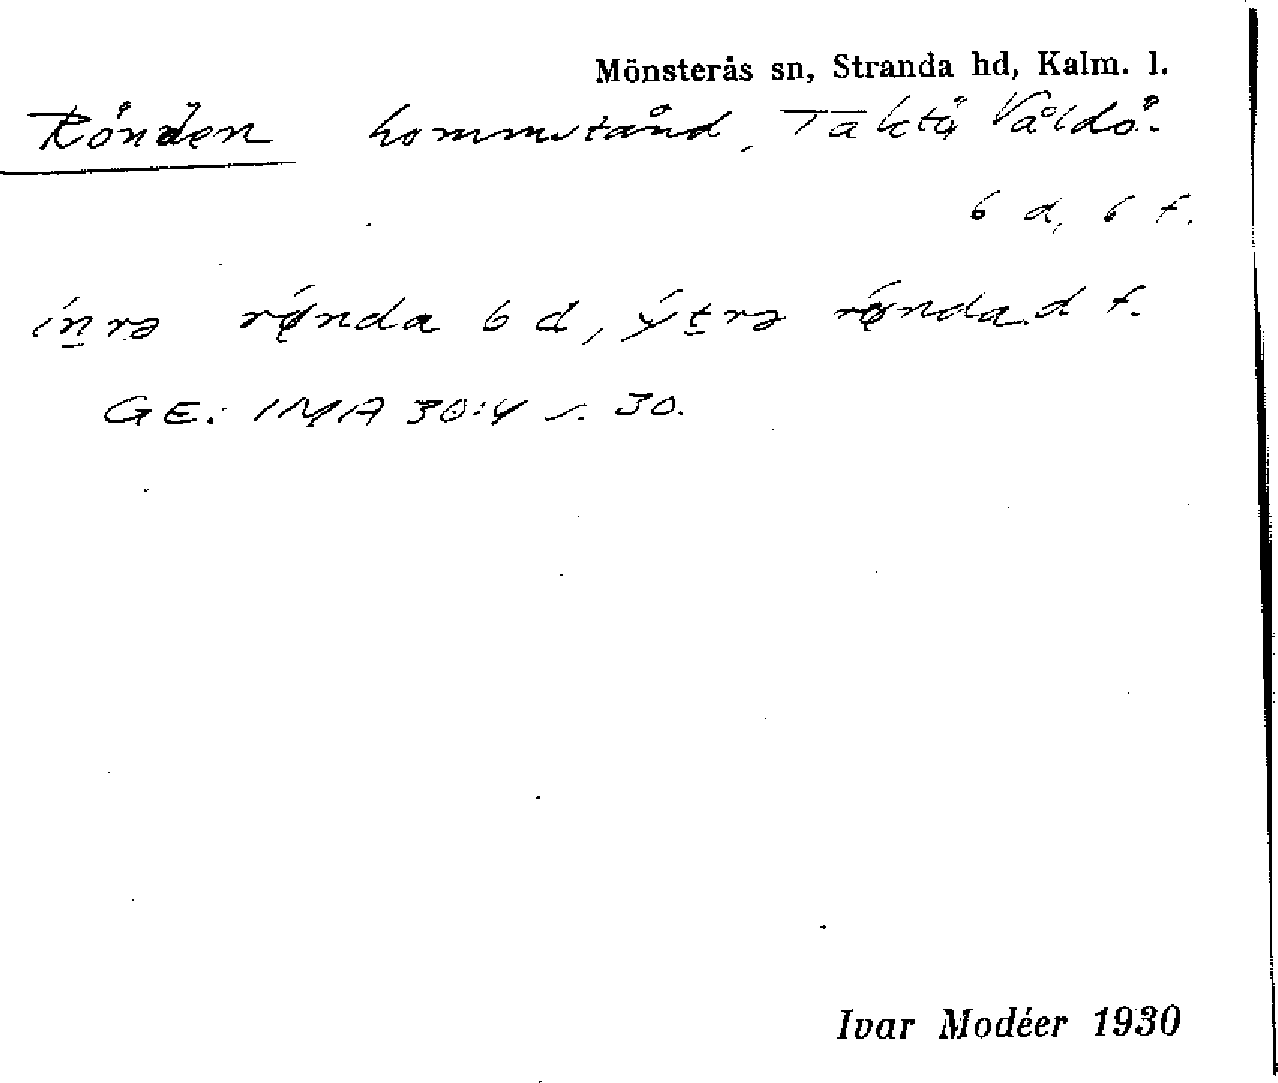 Mönsterås sn, Stranda hd, Kalm. l.
Rönden hommstånd, Taktö Våldö.
6 d, 6 f.
ínrə rǿnda 6 d, ýtrə rǿnda d f.
GE: IMA 30:4 s. 30.
Ivar Modéer 1930